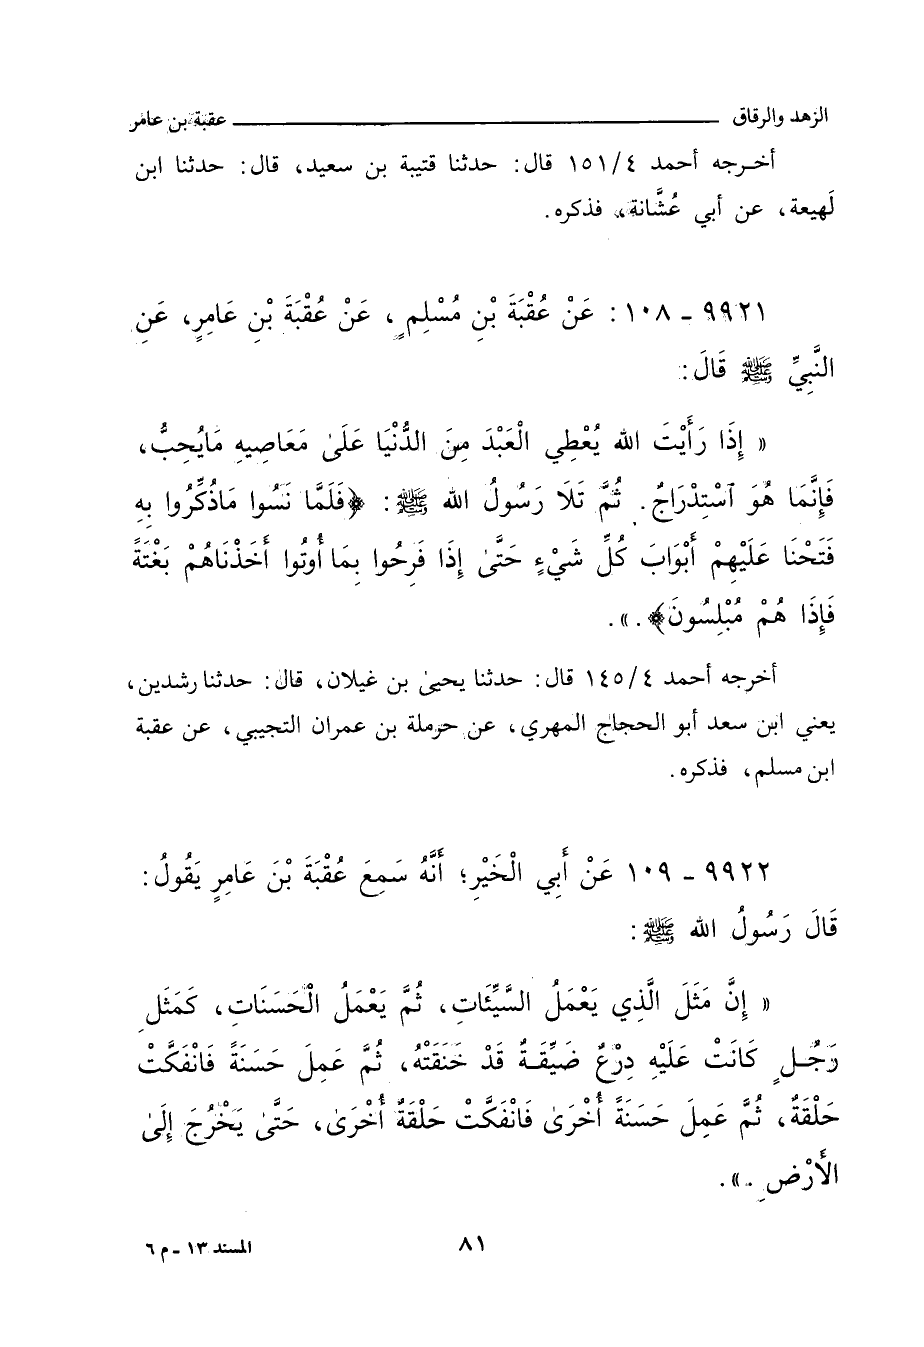 الزهد والرقاق ـــــــــ عقبة بن عامر
أخرجه أحمد ٤/ ١٥١ قال: حدثنا قتيبة بن سعيد، قال: حدثنا ابن
لَهيعة، عن أبي عُشَّانة، فذكره.
٩٩٢١ - ١٠٨: عَنْ عُقْبَةَ بْنِ مُسْلِمٍ، عَنْ عُقْبَةَ بْنِ عَامِرٍ، عَنِ
النَّبِيِّ ﷺ قَالَ:
« إِذَا رَأَيْتَ الله يُعْطِي الْعَبْدَ مِنَ الدُّنْيَا عَلَىٰ مَعَاصِيهِ مَايُحِبُّ،
فَإِنَّمَا هُوَ ٱسْتِدْرَاجٌ. ثُمَّ تَلَا رَسُولُ الله ﷺ: ﴿فَلَمَّا نَسُوا مَاذُكِّرُوا بِهِ
فَتَحْنَا عَلَيْهِمْ أَبْوَابَ كُلِّ شَيْءٍ حَتَّىٰ إِذَا فَرِحُوا بِمَا أُوتُوا أَخَذْنَاهُمْ بَغْتَةً
فَإِذَا هُمْ مُبْلِسُونَ﴾.».
أخرجه أحمد ٤/ ١٤٥ قال: حدثنا يحيىٰ بن غيلان، قال: حدثنا رشدين،
يعني ابن سعد أبو الحجاج المهري، عن حرملة بن عمران التجيبي، عن عقبة
ابن مسلم، فذكره.
٩٩٢٢ - ١٠٩ عَنْ أَبِي الْخَيْرِ؛ أَنَّهُ سَمِعَ عُقْبَةَ بْنَ عَامِرٍ يَقُولُ:
قَالَ رَسُولُ الله ﷺ:
« إِنَّ مَثَلَ الَّذِي يَعْمَلُ السَّيِّئَاتِ، ثُمَّ يَعْمَلُ الْحَسَنَاتِ، كَمَثَلِ
رَجُلٍ كَانَتْ عَلَيْهِ دِرْعٌ ضَيِّقَةٌ قَدْ خَنَقَتْهُ، ثُمَّ عَمِلَ حَسَنَةً فَانْفَكَّتْ
حَلْقَةٌ، ثُمَّ عَمِلَ حَسَنَةً أُخْرَىٰ فَانْفَكَّتْ حَلْقَةٌ أُخْرَىٰ، حَتَّىٰ يَخْرُجَ إِلَىٰ
الأَرْضِ .».
٨١
المسند ١٣ - م ٦